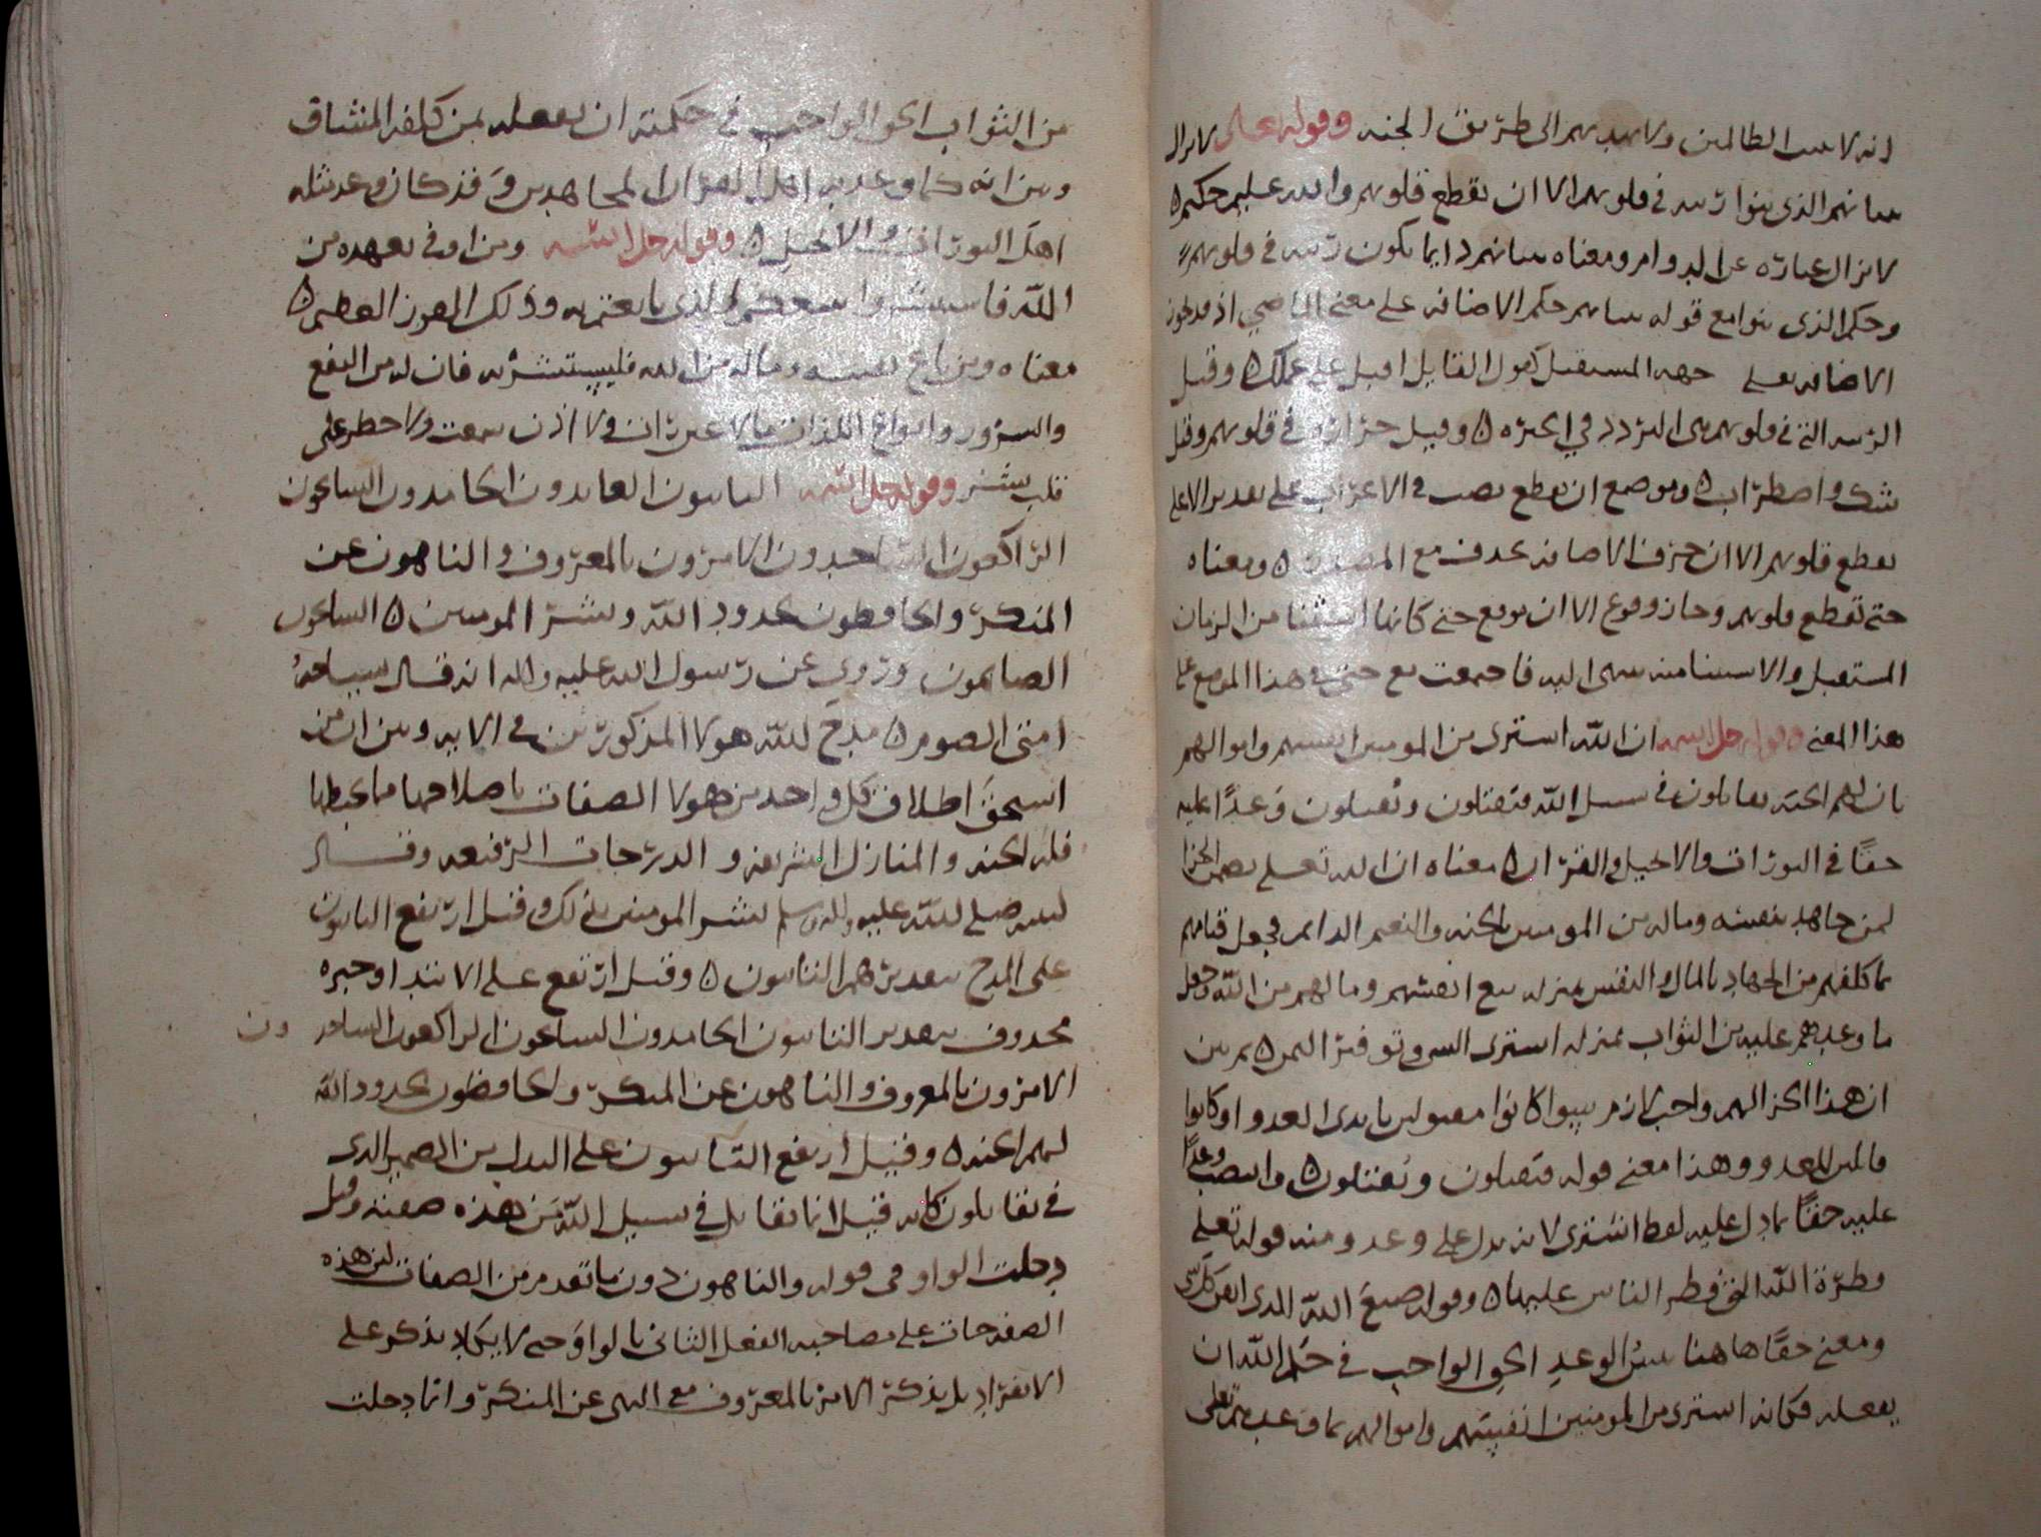 انه لا يثيب الظالمين ولا يهديهم الى طريق الجنه وقوله تعلى لا يزال
بنيانهم الذي بنوا ريبه في قلوبهم الا ان تقطع قلوبهم والله عليم حكيم ه
لا يزال عباره عن الدوام ومعناه بنيانهم دايما يكون ريبه في قلوبهم
وحكم الذي بنوا مع قوله بنيانهم حكم الاضافه على معنى الماضي اذ قد تكون
الاضافه تعلى جهه المستقبل كقول القايل اقبل على عملك ه وقيل
الريبه التي في قلوبهم هي التردد في الحيره ه وقيل حزازه في قلوبهم وقيل
شك واضطراب ه وموضع ان تقطع نصب في الاعراب على تقدير الا على
تقطع قلوبهم الا ان حرف الاضافه يحذف مع المصدر ه ومعناه
حتى تقطع قلوبهم وجاز وقوع الا ان موقع حتى كانها استثنا من الزمان
المستقبل والاستثنا منه ينتهي اليه فاجتمعت مع حتى في هذا الموضع على
هذا المعنى وقوله جل اسمه ان الله اشترى من المومنين انفسهم واموالهم
بان لهم الجنه يقاتلون في سبيل الله فيقتلون ويقتلون وعدًا عليه
حقًا في التورات والانجيل والقران ه معناه ان الله تعلى يضمن الجزا
لمن جاهد بنفسه وماله من المومنين بالجنه والنعيم الدايم فجعل قيامهم
بما كلفهم من الجهاد بالمال والنفس بمنزله بيع انفسهم ومالهم من الله وجعل
ما وعدهم عليه من الثواب بمنزله اشترى الشي وتوفير الثمن ه ثم بين
ان هذا الجزا لهم واجب لازم سوا كانوا مقتولين بايدي العدو او كانوا
قاتلين للعدو وهذا معنى قوله فيقتلون ويقتلون ه وانتصب وعدًا
عليه حقًا بما دل عليه لفظ اشترى لانه يدل على وعد ومنه قوله تعلى
فطرة الله التي فطر الناس عليها ه وقوله صنع الله الذي اتقن كل شي
ومعنى حقًا هاهنا يبين الوعد الحق الواجب في حكم الله ان
يفعله فكانه اشترى من المومنين انفسهم واموالهم بما وعدهم تعلى
من الثواب الحق الواجب في حكمته ان يفعله بمن كلفه المشاق
وبين انه كما وعد به اهل القران المجاهدين وقد كان وعد مثله
اهل التوراة والانجيل ه وقوله جل اسمه ومن اوفى بعهده من
الله فاستبشروا ببيعكم الذي بايعتم به وذلك الفوز العظيم ه
معناه ومن باع نفسه وماله من الله فليستبشر به فان له من النفع
والسرور وانواع اللذات ما لا عين رات ولا اذن سمعت ولا خطر على
قلب بشر وقوله جل اسمه التايبون العابدون الحامدون السايحون
الراكعون الساجدون الامرون بالمعروف والناهون عن
المنكر والحافظون لحدود الله وبشر المومنين ه السايحون
الصايمون وروي عن رسول الله عليه واله انه قال سياحه
امتي الصوم ه مدح الله هولا المذكورين في الايه وبين ان من
استحق اطلاق كل واحد من هولا الصفات باصلاحها مما يحبطها
فله الجنه والمنازل الشريفه والدرجات الرفيعه وقال
لنبيه صلى الله عليه واله وسلم بشر المومنين بذلك وقيل ارتفع التايبون
على المدح بتقدير هم التايبون ه وقيل ارتفع على الابتدا وخبره
محذوف بتقدير التايبون الحامدون السايحون الراكعون الساجدون
الامرون بالمعروف والناهون عن المنكر والحافظون لحدود الله
لهم الجنه ه وقيل ارتفع التايبون على البدل من الضمير الذي
في يقاتلون كانه قيل انما يقاتل في سبيل الله من هذه صفته وقيل
دخلت الواو في قوله والناهون دون ما تقدم من الصفات لان هذه
الصفه جات على مصاحبه الفعل الثاني بالواو حتى لا يكاد يذكر على
الانفراد بل يذكر الامر بالمعروف مع النهي عن المنكر وانما دخلت